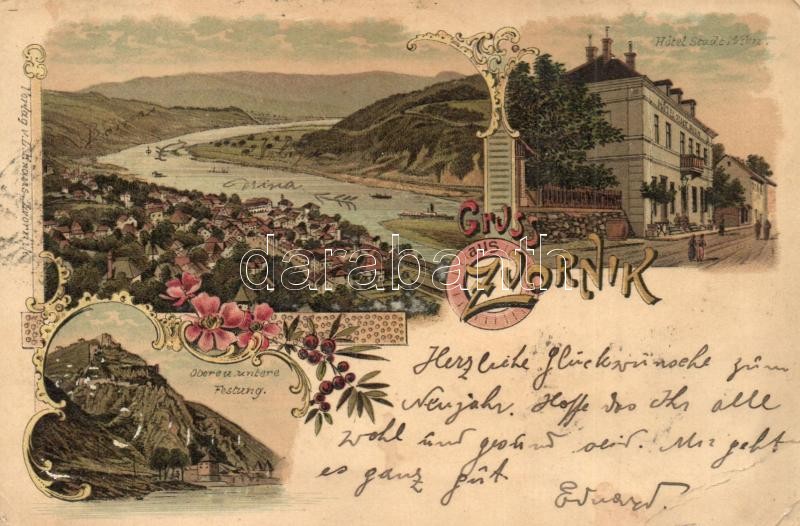 Hôtel Stadt Wien.
HOTEL STADT WIEN
Drina
Gruss
aus
Zvornik
Obere u. untere
Festung.
Herzliche Glückwünsche zum
Neujahr. Hoffe das Ihr alle
wohl und gesund seid. Mir geht
es ganz gut
Eduard.
darabanth.com